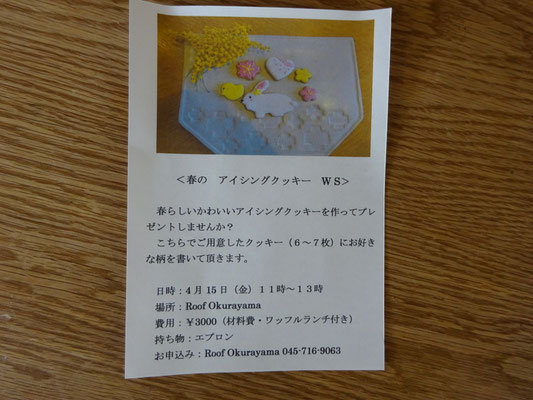 ＜春の　アイシングクッキー　ＷＳ＞
春らしいかわいいアイシングクッキーを作ってプレ
ゼントしませんか？
こちらでご用意したクッキー（６～７枚）にお好き
な柄を書いて頂きます。
日時：４月15日（金）１１時～１３時
場所：Roof Okurayama
費用：￥3000（材料費・ワッフルランチ付き）
持ち物：エプロン
お申込み：Roof Okurayama 045-716-9063